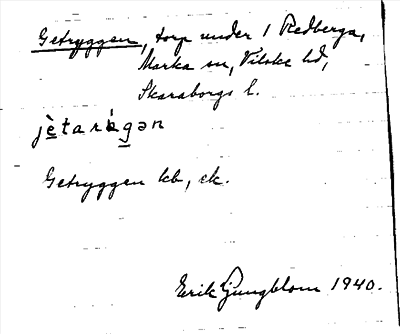 Getryggen, torp under 1 Redberga,
Marka sn, Vilske hd,
Skaraborgs l.
jètaràgən
Getryggen kb, ek.
Erik Ljungblom 1940.